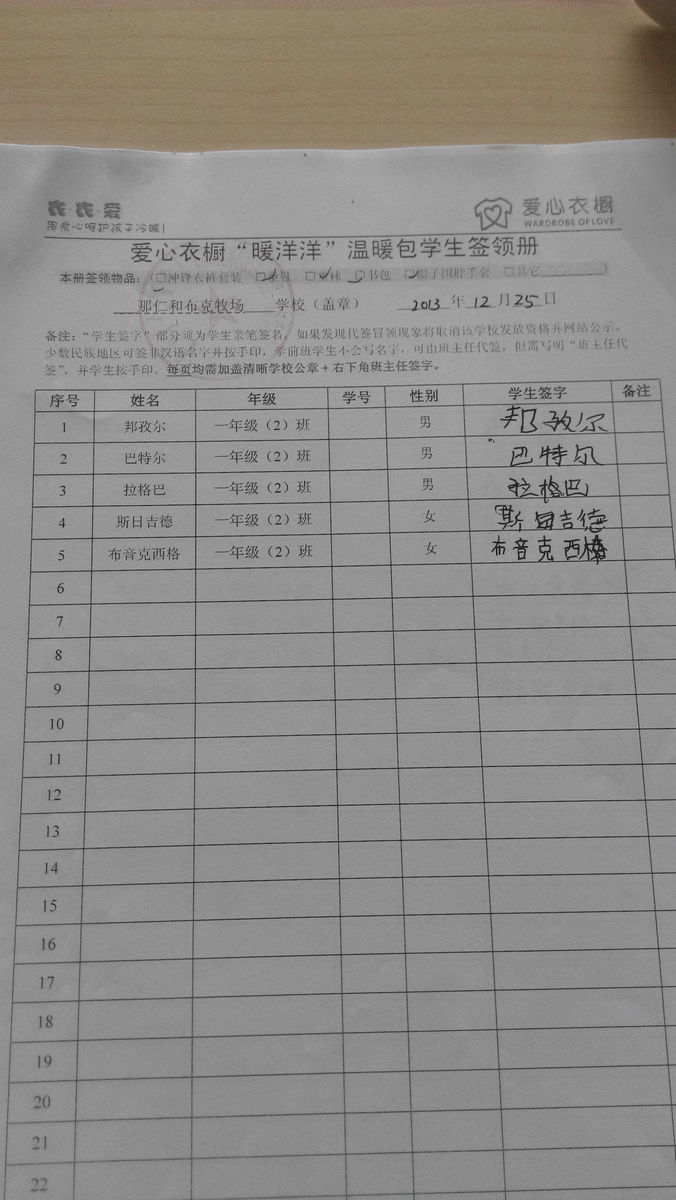 衣·衣·爱
用爱心呵护孩子冷暖!
爱心衣橱
WARDROBE OF LOVE
爱心衣橱“暖洋洋”温暖包学生签领册
本册签领物品:(□冲锋衣裤套装 □ □ □书包 □帽子围脖手套 □其它
那仁和布克牧场 学校(盖章) 2013 年 12 月 25 日
备注:“学生签字”部分须为学生亲笔签名,如果发现代签冒领现象将取消该学校发放资格并网站公示。
少数民族地区可签非汉语名字并按手印,学前班学生不会写名字,可由班主任代签,但需写明“班主任代
签”,并学生按手印。每页均需加盖清晰学校公章+右下角班主任签字。
序号 姓名 年级 学号 性别 学生签字 备注
1 邦孜尔 一年级(2)班 男 邦孜尔
2 巴特尔 一年级(2)班 男 巴特尔
3 拉格巴 一年级(2)班 男 拉格巴
4 斯日吉德 一年级(2)班 女 斯日吉德
5 布音克西格 一年级(2)班 女 布音克西格
6
7
8
9
10
11
12
13
14
15
16
17
18
19
20
21
22